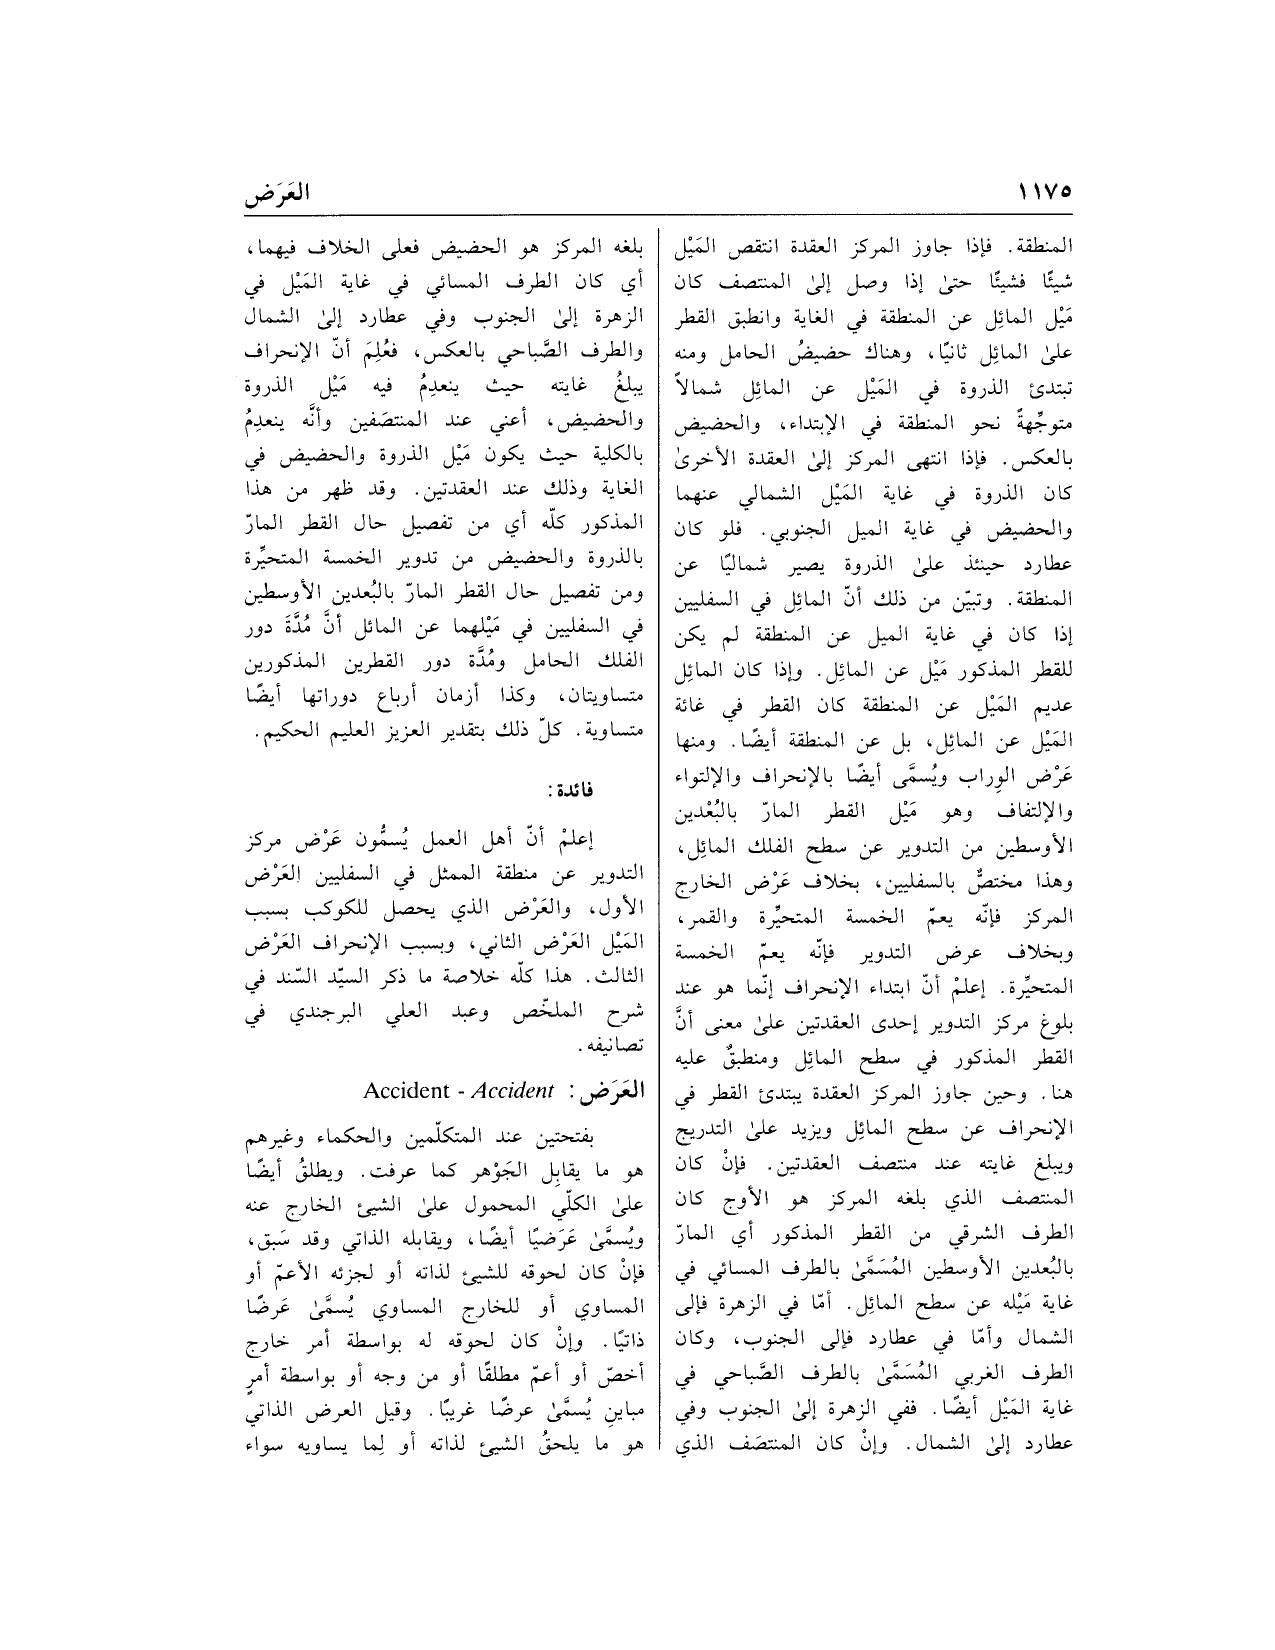 ١١٧٥
العَرَض
المنطقة. فإذا جاوز المركز العقدة انتقص المَيْل
شيئًا فشيئًا حتىٰ إذا وصل إلىٰ المنتصف كان
مَيْل المائِل عن المنطقة في الغاية وانطبق القطر
علىٰ المائِل ثانيًا، وهناك حضيضُ الحامل ومنه
تبتدئ الذروة في المَيْل عن المائِل شمالاً
متوجِّهةً نحو المنطقة في الإبتداء، والحضيض
بالعكس. فإذا انتهى المركز إلىٰ العقدة الأخرىٰ
كان الذروة في غاية المَيْل الشمالي عنهما
والحضيض في غاية الميل الجنوبي. فلو كان
عطارد حينئذ علىٰ الذروة يصير شماليًا عن
المنطقة. وتبيّن من ذلك أنّ المائِل في السفليين
إذا كان في غاية الميل عن المنطقة لم يكن
للقطر المذكور مَيْل عن المائِل. وإذا كان المائِل
عديم المَيْل عن المنطقة كان القطر في غائة
المَيْل عن المائِل، بل عن المنطقة أيضًا. ومنها
عَرْض الوِراب ويُسمَّى أيضًا بالإنحراف والإلتواء
والإلتفاف وهو مَيْل القطر المارّ بالبُعْدين
الأوسطين من التدوير عن سطح الفلك المائِل،
وهذا مختصٌّ بالسفليين، بخلاف عَرْض الخارج
المركز فإنّه يعمّ الخمسة المتحيِّرة والقمر،
وبخلاف عرض التدوير فإنّه يعمّ الخمسة
المتحيِّرة. إعلمْ أنّ ابتداء الإنحراف إنّما هو عند
بلوغ مركز التدوير إحدى العقدتين علىٰ معنى أنَّ
القطر المذكور في سطح المائِل ومنطبقٌ عليه
هنا. وحين جاوز المركز العقدة يبتدئ القطر في
الإنحراف عن سطح المائِل ويزيد علىٰ التدريج
ويبلغ غايته عند منتصف العقدتين. فإنْ كان
المنتصف الذي بلغه المركز هو الأوج كان
الطرف الشرقي من القطر المذكور أي المارّ
بالبُعدين الأوسطين المُسَمَّىٰ بالطرف المسائي في
غاية مَيْله عن سطح المائِل. أمّا في الزهرة فإلى
الشمال وأمّا في عطارد فإلى الجنوب، وكان
الطرف الغربي المُسَمَّىٰ بالطرف الصَّباحي في
غاية المَيْل أيضًا. ففي الزهرة إلىٰ الجنوب وفي
عطارد إلىٰ الشمال. وإنْ كان المنتصَف الذي
بلغه المركز هو الحضيض فعلى الخلاف فيهما،
أي كان الطرف المسائي في غاية المَيْل في
الزهرة إلىٰ الجنوب وفي عطارد إلىٰ الشمال
والطرف الصَّباحي بالعكس، فعُلِمَ أنّ الإنحراف
يبلغُ غايته حيث ينعدِمُ فيه مَيْل الذروة
والحضيض، أعني عند المنتصَفين وأنَّه ينعدِمُ
بالكلية حيث يكون مَيْل الذروة والحضيض في
الغاية وذلك عند العقدتين. وقد ظهر من هذا
المذكور كلّه أي من تفصيل حال القطر المارّ
بالذروة والحضيض من تدوير الخمسة المتحيِّرة
ومن تفصيل حال القطر المارّ بالبُعدين الأوسطين
في السفليين في مَيْلهما عن المائل أنَّ مُدَّةَ دور
الفلك الحامل ومُدَّة دور القطرين المذكورين
متساويتان، وكذا أزمان أرباع دوراتها أيضًا
متساوية. كلّ ذلك بتقدير العزيز العليم الحكيم.
فائدة:
إعلمْ أنّ أهل العمل يُسمُّون عَرْض مركز
التدوير عن منطقة الممثل في السفليين العَرْض
الأول، والعَرْض الذي يحصل للكوكب بسبب
المَيْل العَرْض الثاني، وبسبب الإنحراف العَرْض
الثالث. هذا كلّه خلاصة ما ذكر السيّد السّند في
شرح الملخّص وعبد العلي البرجندي في
تصانيفه.
العَرَض: Accident - Accident
بفتحتين عند المتكلّمين والحكماء وغيرهم
هو ما يقابِل الجَوْهر كما عرفت. ويطلقُ أيضًا
علىٰ الكلّي المحمول علىٰ الشيئ الخارج عنه
ويُسمَّىٰ عَرَضيًا أيضًا، ويقابله الذاتي وقد سَبق،
فإنْ كان لحوقه للشيئ لذاته أو لجزئه الأعمّ أو
المساوي أو للخارج المساوي يُسمَّىٰ عَرضًا
ذاتيًا. وإنْ كان لحوقه له بواسطة أمر خارج
أخصّ أو أعمّ مطلقًا أو من وجه أو بواسطة أمرٍ
مباينٍ يُسمَّىٰ عرضًا غريبًا. وقيل العرض الذاتي
هو ما يلحقُ الشيئ لذاته أو لِما يساويه سواء